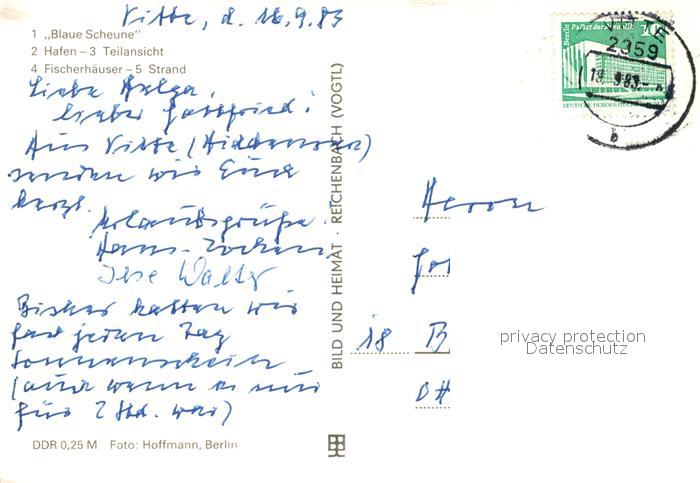 Vitte, d. 16.9.83
1 „Blaue Scheune"
2 Hafen – 3 Teilansicht
4 Fischerhäuser – 5 Strand
Liebe Helga,
lieber Gottfried!
Aus Vitte (Hiddensee)
senden wir Euch
herzl.
Urlaubsgrüße
Hans-Jochen,
Ilse Waltz
Bisher hatten wir
fast jeden Tag
Sonnenschein
(auch wenn es nur
für 2 Std. war)
DDR 0,25 M Foto: Hoffmann, Berlin
BILD UND HEIMAT · REICHENBACH (VOGTL)
Berlin, Palast der Republik
10
DEUTSCHE DEMOKRAT
VITTE
2359
b
Herrn
Got
18 B
privacy protection
Datenschutz